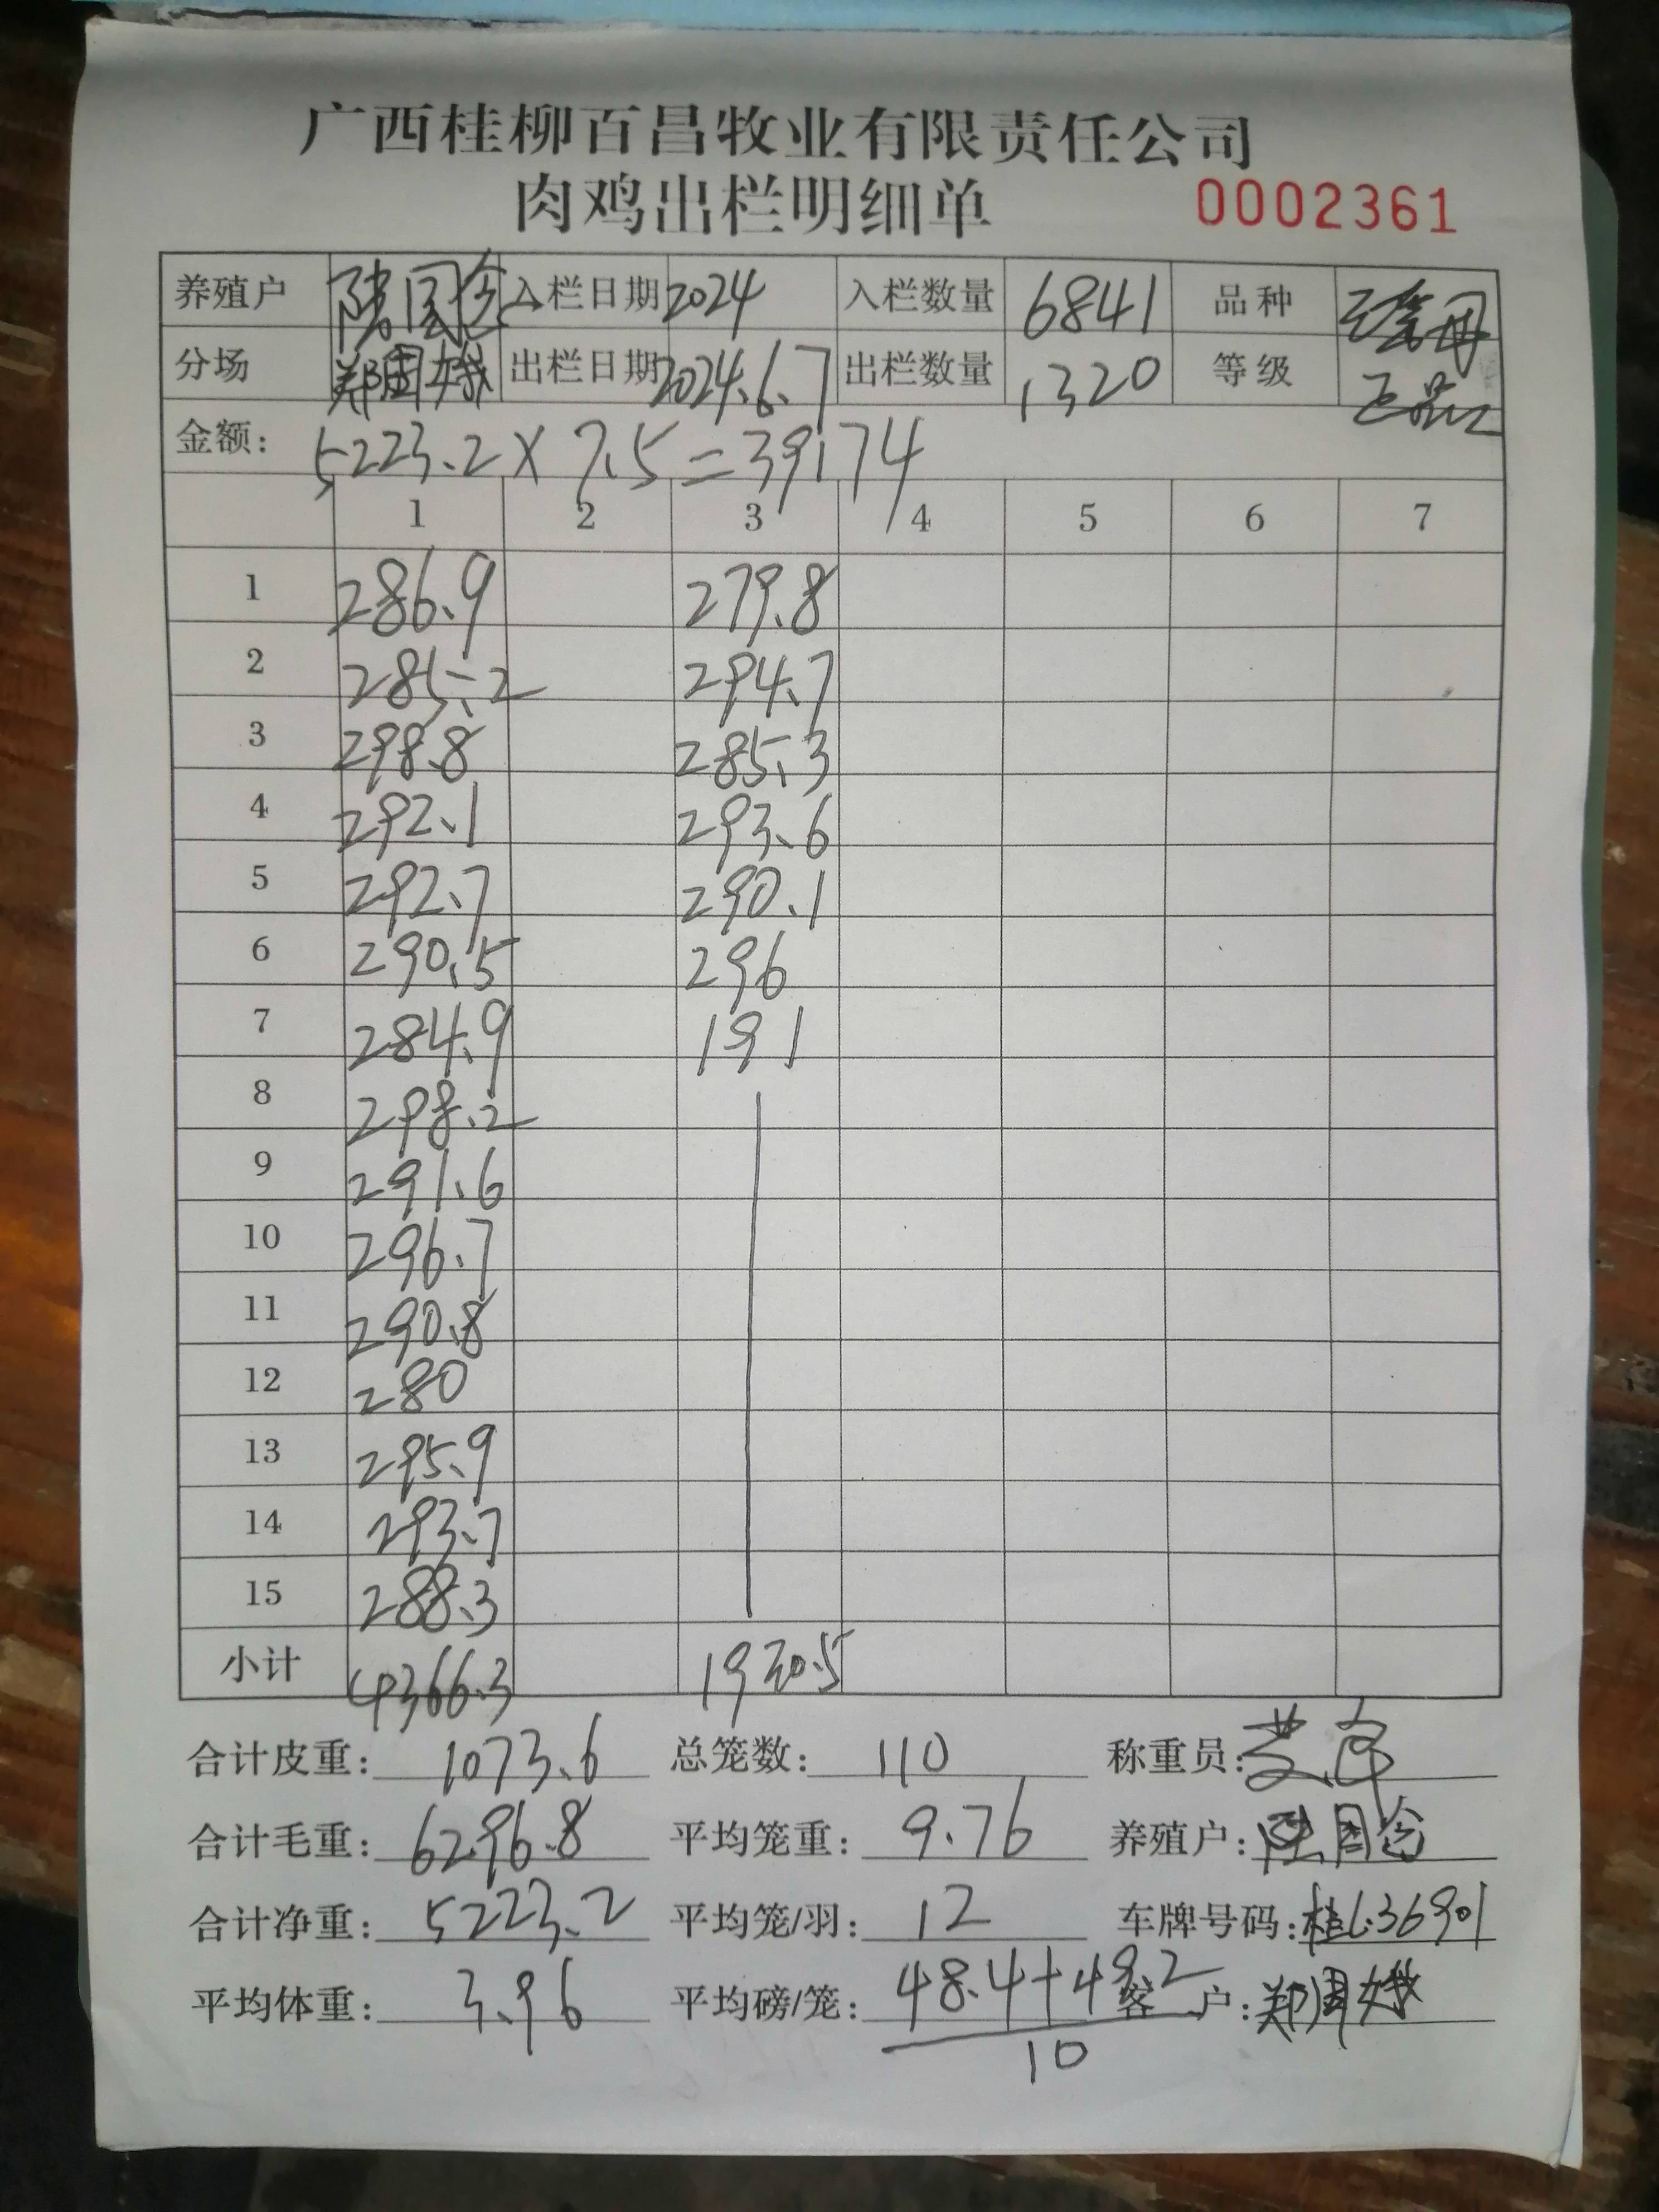 广西桂柳百昌牧业有限责任公司
肉鸡出栏明细单 0002361
养殖户 入栏日期 2024 入栏数量 6841 品种
分场 郑周娥 出栏日期 2024.6.7 出栏数量 1320 等级 正品
金额: 5223.2×7.5=39174
1 2 3 4 5 6 7
1 286.9 279.8
2 285.2 294.7
3 298.8 285.3
4 292.1 293.6
5 292.7 290.1
6 290.5 296
7 284.9 191
8 298.2
9 291.6
10 296.7
11 290.8
12 280
13 295.9
14 293.7
15 288.3
小计 4366.3 1930.5
合计皮重: 1073.6 总笼数: 110 称重员:
合计毛重: 6296.8 平均笼重: 9.76 养殖户:
合计净重: 5223.2 平均笼/羽: 12 车牌号码: 桂L36901
平均体重: 3.96 平均磅/笼: 48.4+49.2 客户: 郑周娥
10